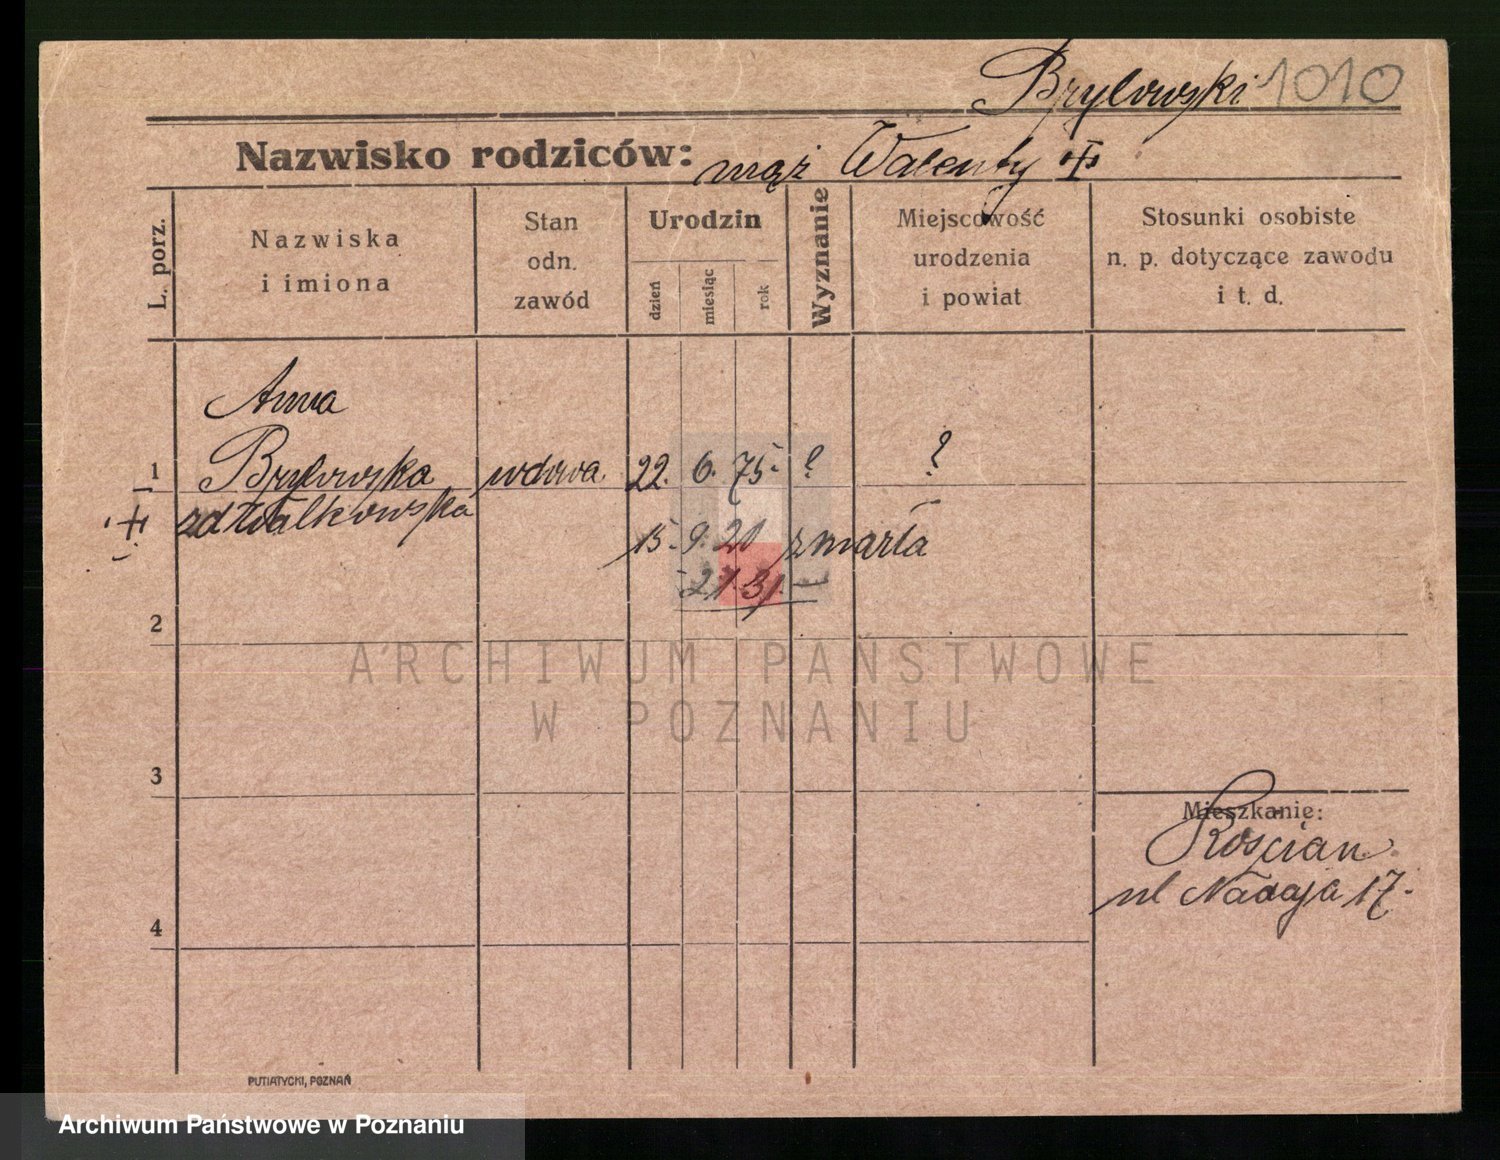 Bryłowski 1010
Nazwisko rodziców: mąż Walenty
L. porz.
Nazwiska
i imiona
Stan
odn.
zawód
Urodzin
dzień
miesiąc
rok
Wyznanie
Miejscowość
urodzenia
i powiat
Stosunki osobiste
n. p. dotyczące zawodu
i t. d.
Anna
1 Bryłowska wdowa 22. 6. 75. ? ?
zd Walkowska
15. 9. 21 zmarła
2
ARCHIWUM PAŃSTWOWE
W POZNANIU
3
Mieszkanie:
Kościan
ul Nadaja 17.
4
PUTIATYCKI, POZNAŃ
Archiwum Państwowe w Poznaniu